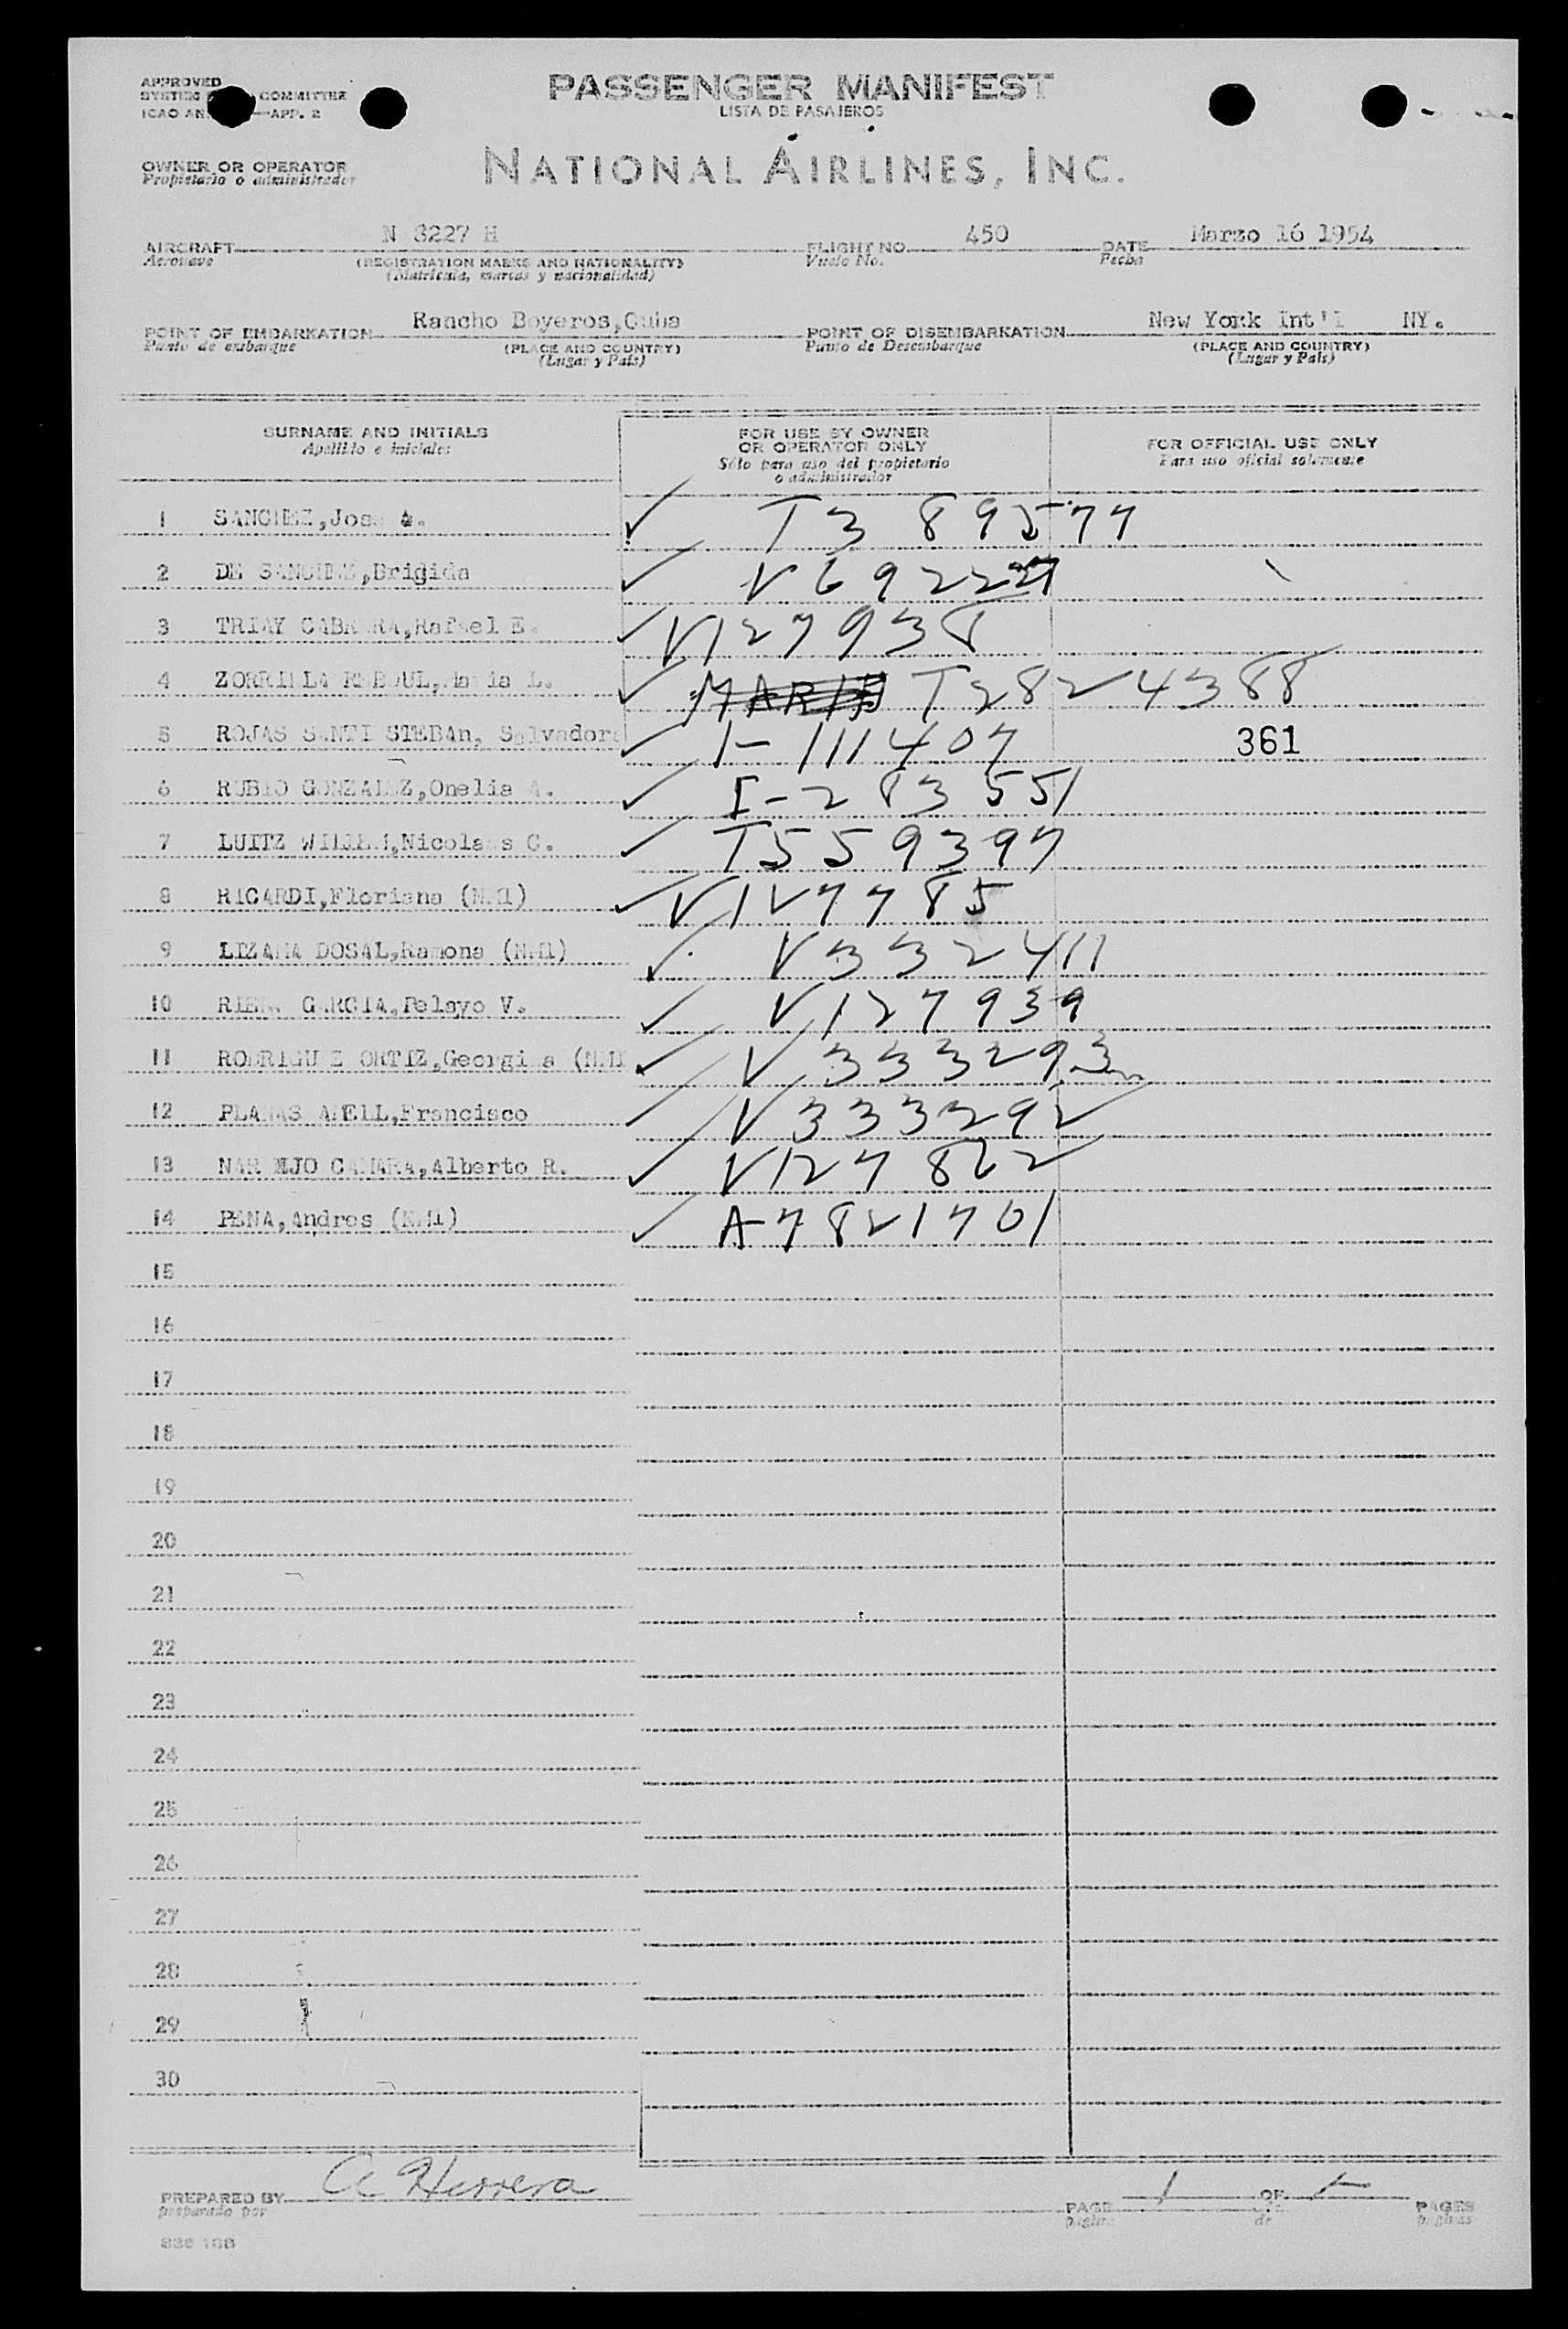 APPROVED
COMMITTEE
ICAO AN —APP. 2
PASSENGER MANIFEST
LISTA DE PASAJEROS
OWNER OR OPERATOR
Propietario o administrador
NATIONAL AIRLINES, INC.
AIRCRAFT N 8227 H FLIGHT NO. 450 DATE Marzo 16 1954
Aeronave (REGISTRATION MARKS AND NATIONALITY) Vuelo No. Fecha
(Matricula, marcas y nacionalidad)
POINT OF EMBARKATION Rancho Boyeros,Cuba POINT OF DISEMBARKATION New York Int'l NY.
Punto de embarque (PLACE AND COUNTRY) Punto de Desembarque (PLACE AND COUNTRY)
(Lugar y País) (Lugar y País)
SURNAME AND INITIALS
Apellido e iniciales
FOR USE BY OWNER
OR OPERATOR ONLY
Sólo para uso del propietario
o administrador
FOR OFFICIAL USE ONLY
Para uso oficial solamente
1 SANCHEZ,Jose A. ✓ T3 89577
2 DE SANCHEZ,Brigida ✓ V 692227
3 TRIAY CABRERA,Rafael E. ✓ V127938
4 ZORRILLA REBOUL,Maria L. ✓ T2824388
5 ROJAS SANTI STEBAn, Salvadora ✓ I-111407 361
6 RUBIO GONZALEZ,Onelia A. ✓ I-283551
7 LUITZ WILLEM,Nicolaas C. ✓ T559397
8 RICARDI,Floriana (NMI) ✓ V127785
9 LIZAMA DOSAL,Ramona (NMI) ✓ V332411
10 GARCIA,Pelayo V. ✓ V127939
11 RODRIGUEZ ORTIZ,Georgina (NMI ✓ V 333293
12 PLANAS ANELL,Francisco ✓ V333292
13 NARANJO CAMARA,Alberto R. ✓ V127862
14 PENA,Andres (NMI) ✓ A7821701
15
16
17
18
19
20
21
22
23
24
25
26
27
28
29
30
PREPARED BY A Herrera PAGE 1 OF 1 PAGES
preparado por página de páginas